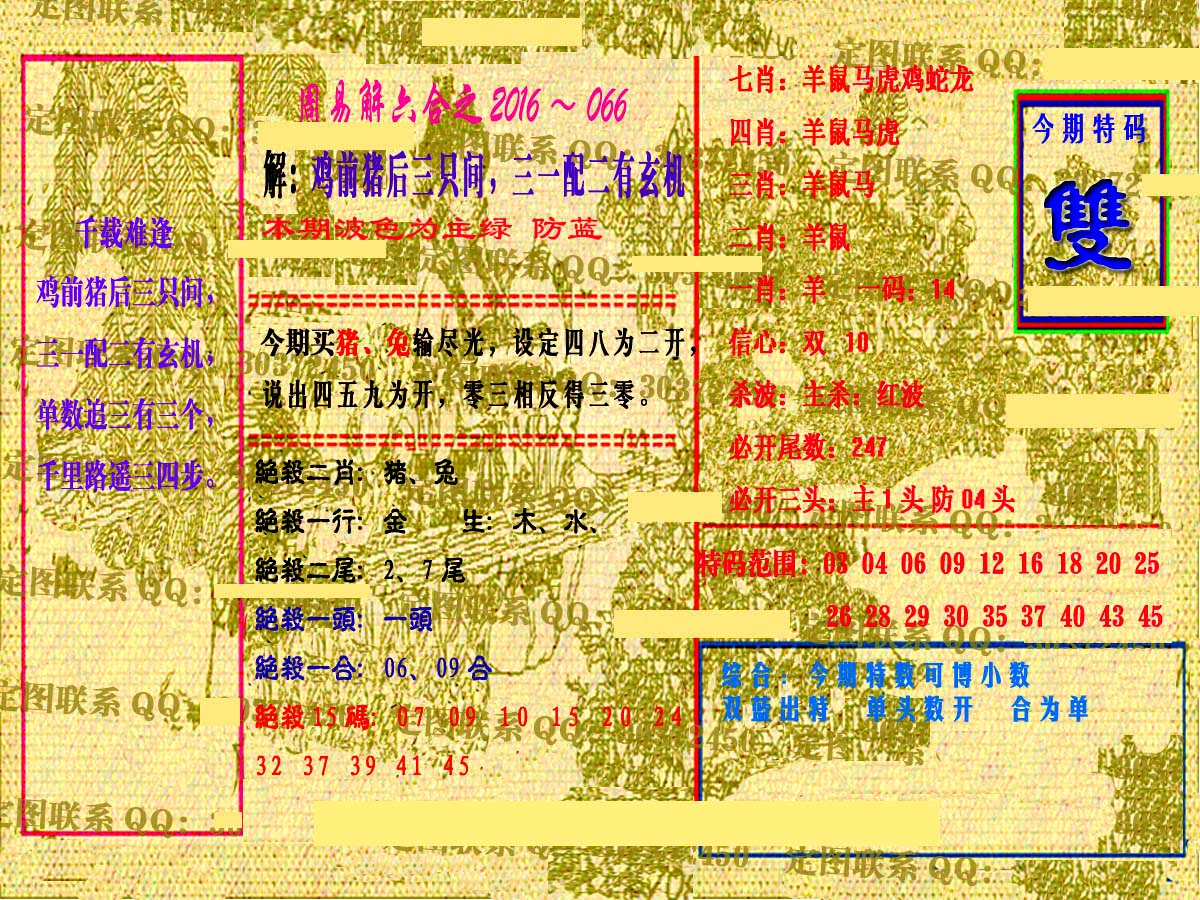 周易解六合之 2016～066
解：鸡前猪后三只间，三一配二有玄机
本期波色为主绿 防蓝
千载难逢
鸡前猪后三只间，
三一配二有玄机，
单数追三有三个，
千里路遥三四步。
今期买猪、兔输尽光，设定四八为二开，
说出四五九为开，零三相反得三零。
絕殺二肖：猪、兔
絕殺一行：金 生：木、水、
絕殺二尾：2、7 尾
絕殺一頭：一頭
絕殺一合：06、09 合
絕殺 15 碼：07 09 10 15 20 24
32 37 39 41 45
七肖：羊鼠马虎鸡蛇龙
四肖：羊鼠马虎
三肖：羊鼠马
二肖：羊鼠
一肖：羊 一码：14
信心：双 10
杀波：主杀：红波
必开尾数：247
必开三头：主 1 头 防 04 头
今期特码
雙
特码范围：03 04 06 09 12 16 18 20 25
26 28 29 30 35 37 40 43 45
综合：今期特数可博小数
双蓝出特 单头数开 合为单
定图联系 QQ：